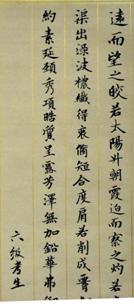 遠而望之皎若太陽升朝霞迫而察之灼若
渠出淥波襛纖得衷脩短合度肩若削成
約素延頸秀項皓質呈露芳澤無加鉛華弗御
六級考生